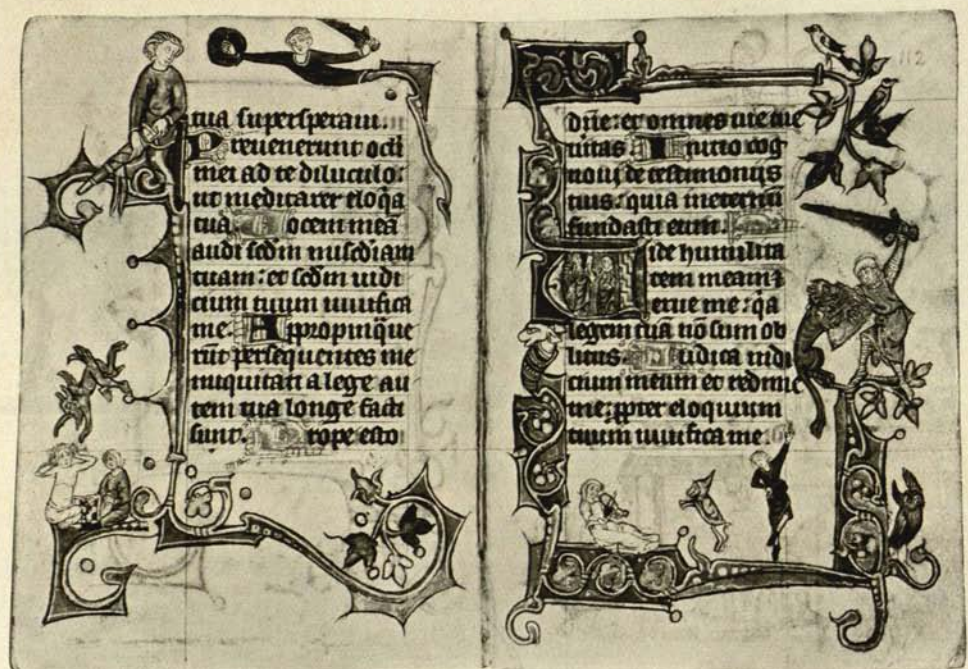 tua supersperaui.
Preuenerunt ocl̃i
mei ad te diluculo:
ut meditarer eloq̃a
tua. Uocem meā
audi scd̃m miscd̃iam
tuam: et scd̃m iudi
cium tuum uiuifica
me. Appropinq̃ue
rūt persequentes me
iniquitati a lege au
tem tua longe facti
sunt. Prope esto
112
dñe: et omnes uie tue
uitas. Initio cog
noui de testimoniis
tuis: quia in eternū
fundasti eam.
Uide humilita
tem meam ⁊
erue me: q̃a
legem tuā nō sum ob
litus. Iudica iudi
cium meum et redime
me: ꝓpter eloquium
tuum uiuifica me.